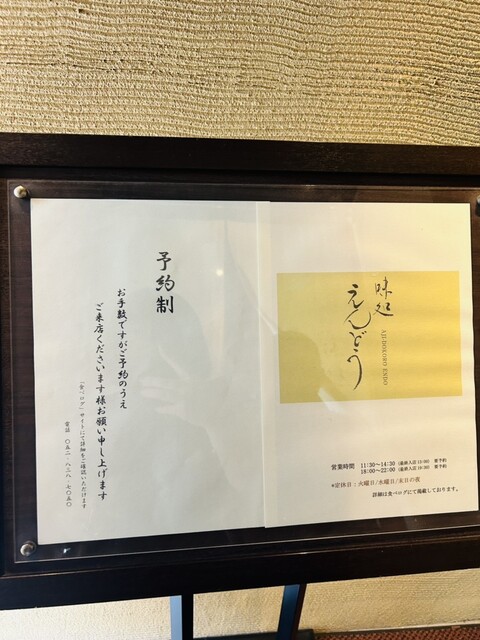 味処
えんどう
AJIDOKORO ENDO
営業時間 11:30〜14:30 (最終入店13:00) 要予約
18:00〜22:00 (最終入店19:30) 要予約
*定休日：火曜日/水曜日/末日の夜
詳細は食べログにて掲載しております。
予約制
お手数ですがご予約のうえ
ご来店くださいます様お願い申し上げます
「食べログ」サイトにて詳細をご確認いただけます
電話 〇五二-八三八-七〇五〇